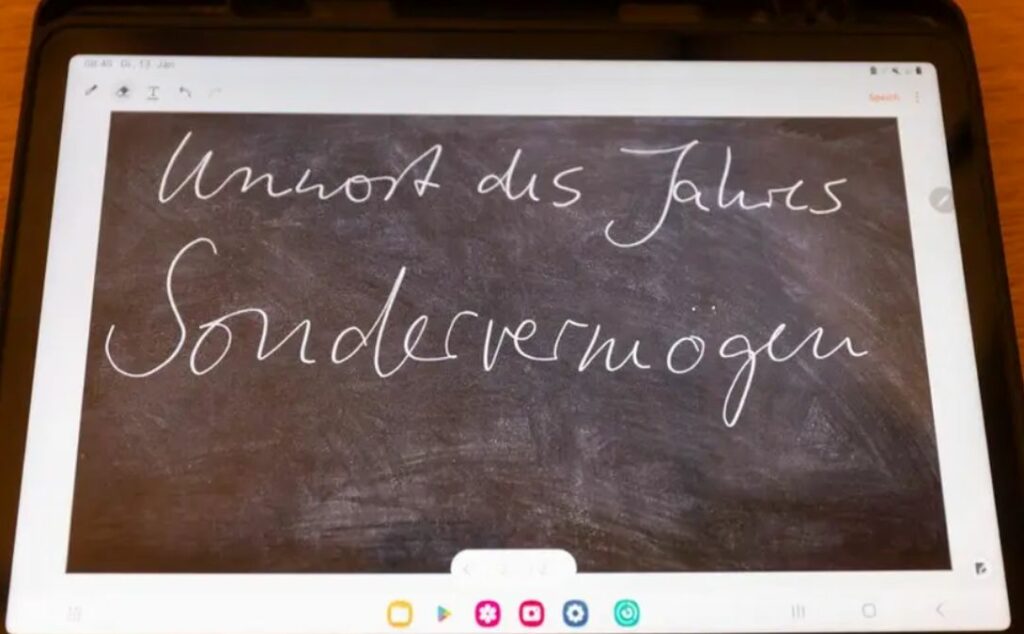 08:40 Di. 13. Jan
Speich
Unwort des Jahres
Sondervermögen